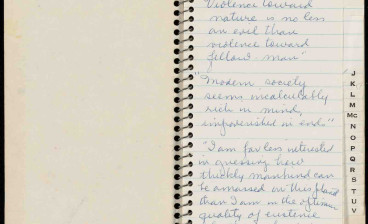 Violence toward
nature is no less
an evil than
violence toward
fellow man"
"Modern society
seems incalculably
rich in mind,
impoverished in ends"
"I am far less interested
in guessing how
thickly mankind can
be amassed on this
than I am in the
quality of existence
J
K
L
M
Mc
N
O
P
Q
R
S
T
U
V